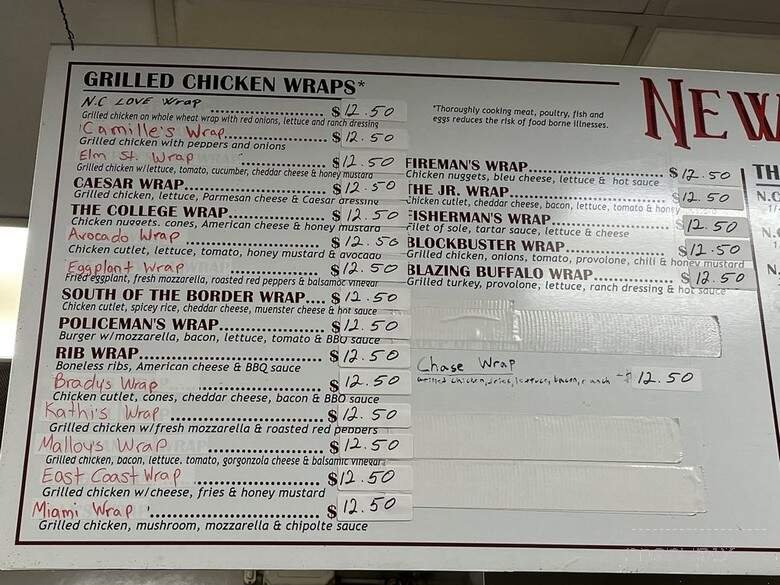 GRILLED CHICKEN WRAPS*
N.C LOVE Wrap $12.50
Grilled chicken on whole wheat wrap with red onions, lettuce and ranch dressing
Camille's Wrap $12.50
Grilled chicken with peppers and onions
Elm St. Wrap $12.50
Grilled chicken w/lettuce, tomato, cucumber, cheddar cheese & honey mustard
CAESAR WRAP $12.50
Grilled chicken, lettuce, Parmesan cheese & Caesar dressing
THE COLLEGE WRAP $12.50
Chicken nuggets, cones, American cheese & honey mustard
Avocado Wrap $12.50
Chicken cutlet, lettuce, tomato, honey mustard & avocado
Eggplant Wrap $12.50
Fried eggplant, fresh mozzarella, roasted red peppers & balsamoc vinegar
SOUTH OF THE BORDER WRAP $12.50
Chicken cutlet, spicy rice, cheddar cheese, muenster cheese & hot sauce
POLICEMAN'S WRAP $12.50
Burger w/mozzarella, bacon, lettuce, tomato & BBQ sauce
RIB WRAP $12.50
Boneless ribs, American cheese & BBQ sauce
Bradys Wrap $12.50
Chicken cutlet, cones, cheddar cheese, bacon & BBQ sauce
Kathi's Wrap $12.50
Grilled chicken w/fresh mozzarella & roasted red peppers
Malloys Wrap $12.50
Grilled chicken, bacon, lettuce, tomato, gorgonzola cheese & balsamic vinegar
East Coast Wrap $12.50
Grilled chicken w/cheese, fries & honey mustard
Miami Wrap $12.50
Grilled chicken, mushroom, mozzarella & chipolte sauce
*Thoroughly cooking meat, poultry, fish and
eggs reduces the risk of food borne illnesses.
FIREMAN'S WRAP $12.50
Chicken nuggets, bleu cheese, lettuce & hot sauce
THE JR. WRAP $12.50
Chicken cutlet, cheddar cheese, bacon, lettuce, tomato & honey
FISHERMAN'S WRAP $12.50
Filet of sole, tartar sauce, lettuce & cheese
BLOCKBUSTER WRAP $12.50
Grilled chicken, onions, tomato, provolone, chili & honey mustard
BLAZING BUFFALO WRAP $12.50
Grilled turkey, provolone, lettuce, ranch dressing & hot sauce
Chase Wrap
Grilled chicken, fries, lettuce, bacon, ranch - $12.50
NEW
TH
N.C
N.
N.